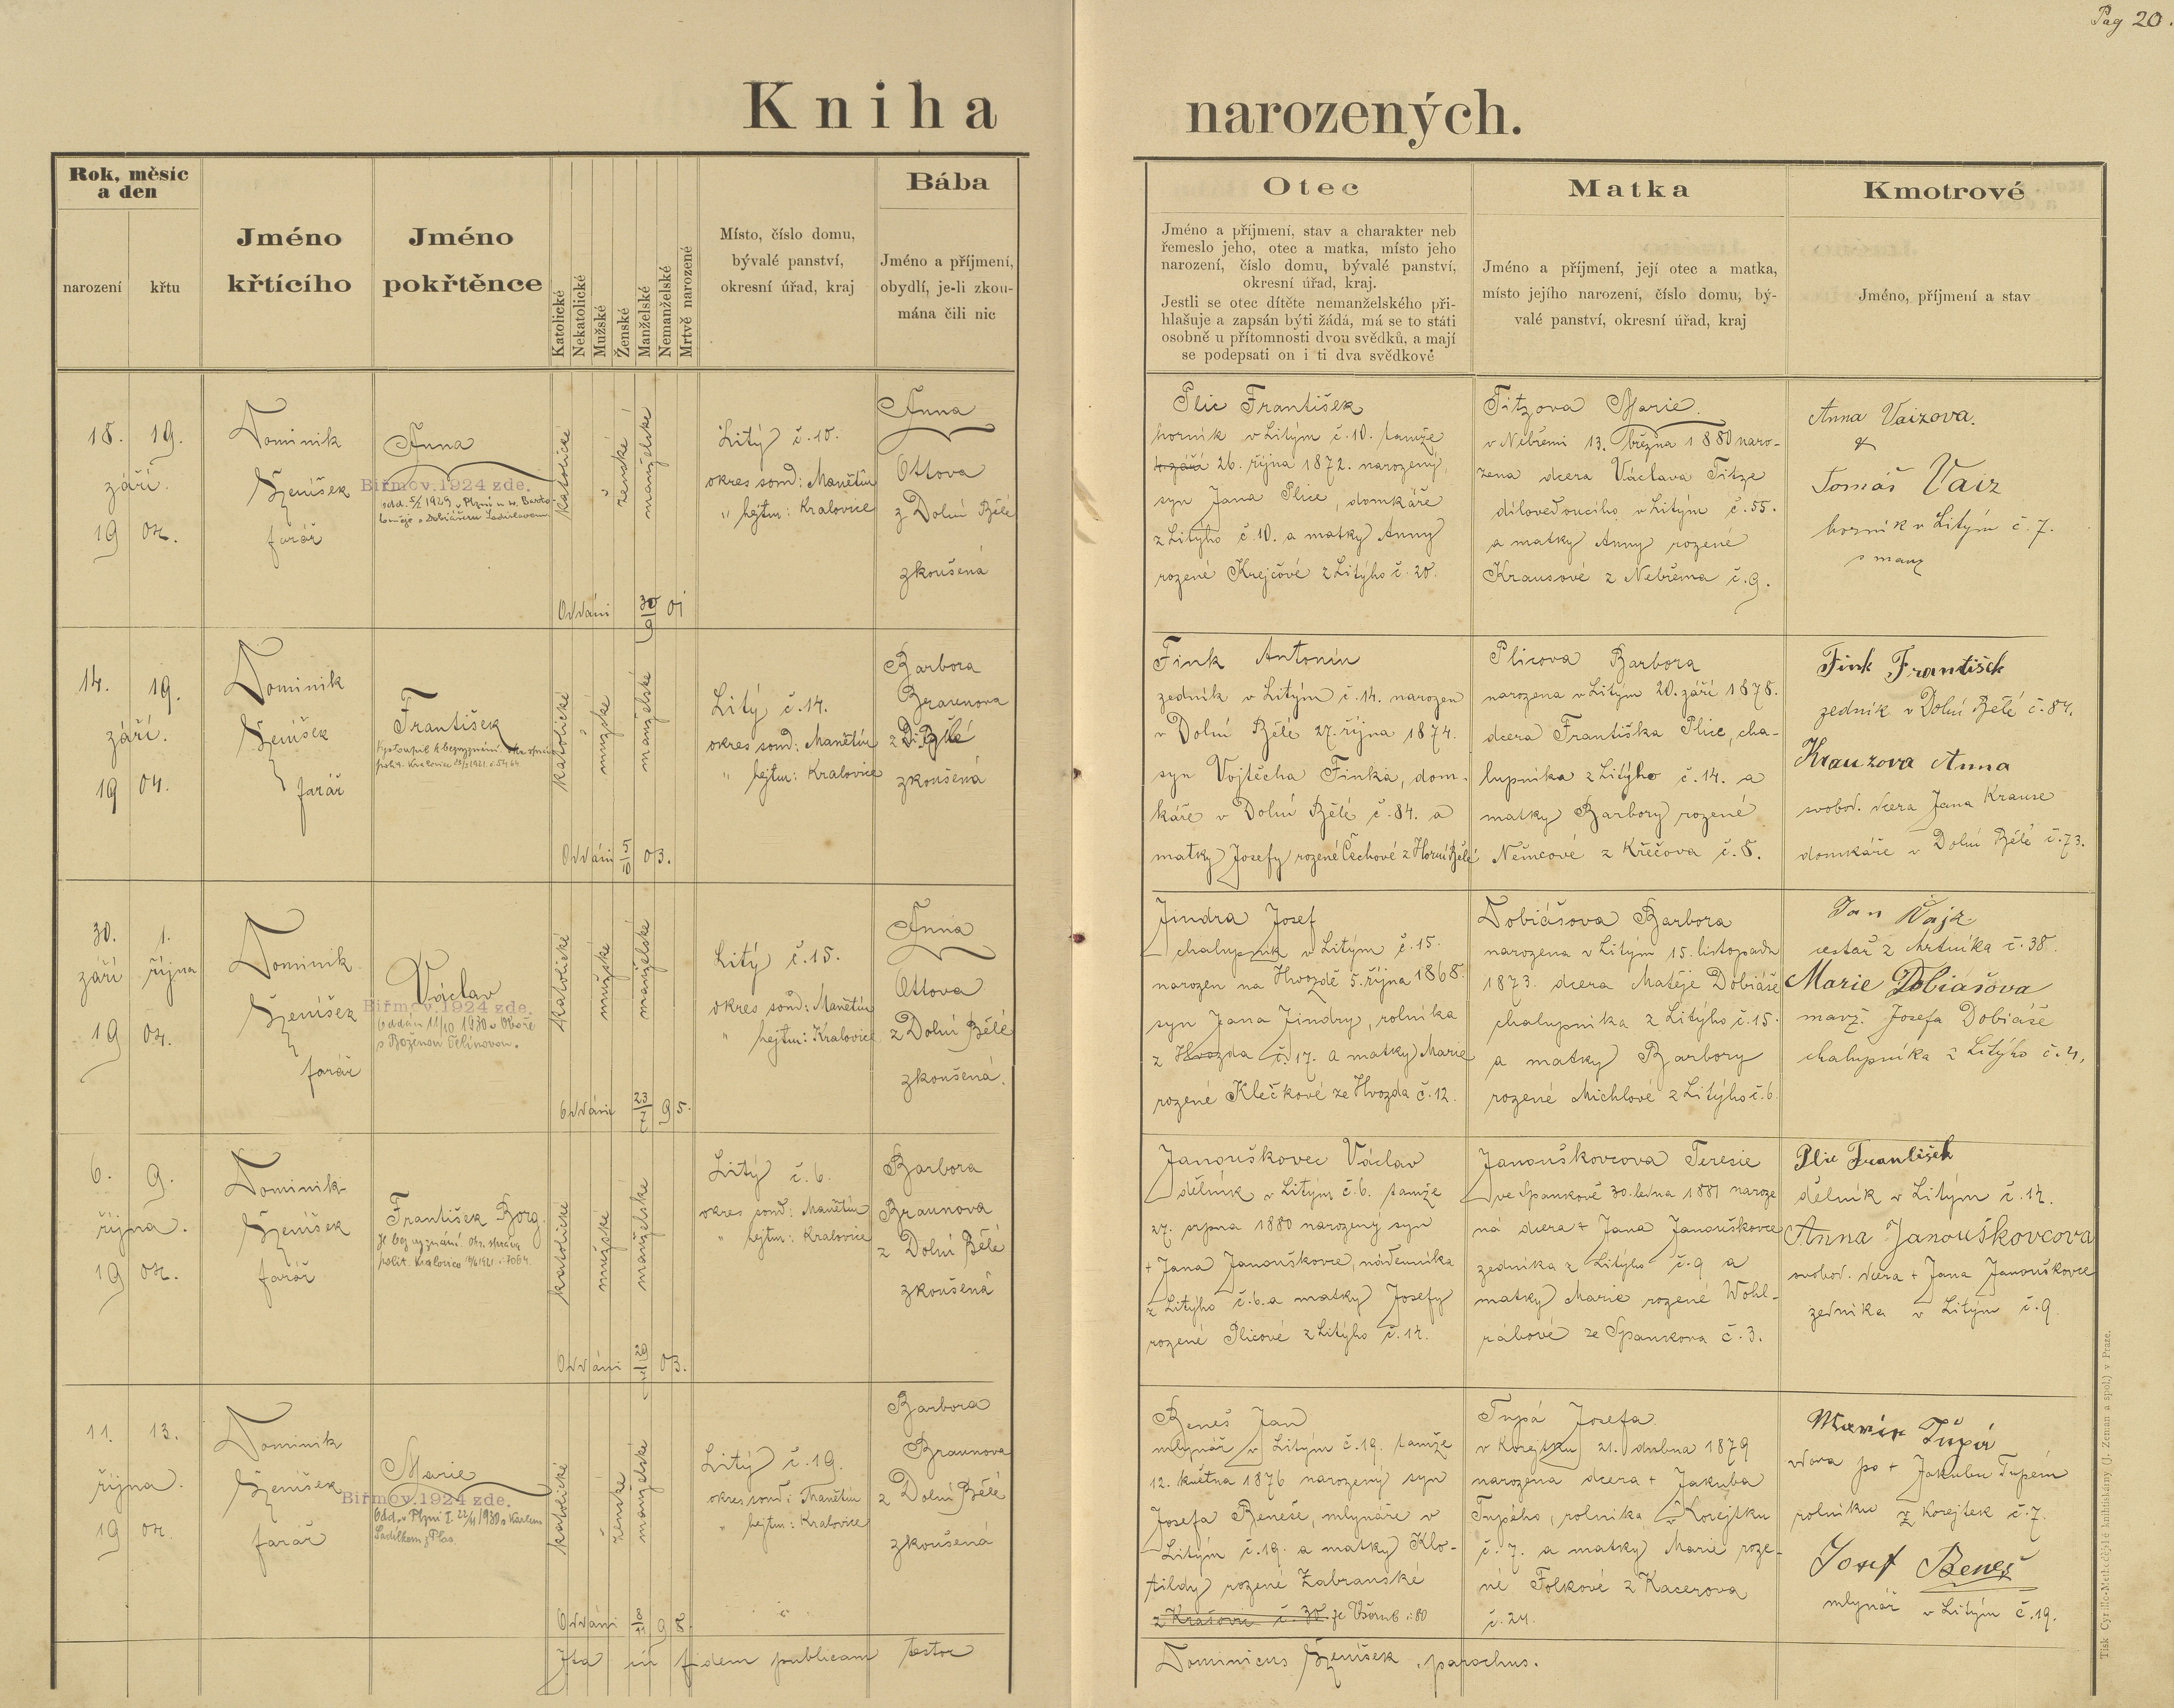 Pag 20.
Kniha narozených.
Rok, měsíc
a den
narození
křtu
Jméno
křtícího
Jméno
pokřtěnce
Katolické
Nekatolické
Mužské
Ženské
Manželské
Nemanželské
Mrtvě narozené
Místo, číslo domu,
bývalé panství,
okresní úřad, kraj
Bába
Jméno a příjmení,
obydlí, je-li zkou-
mána čili nic
Otec
Jméno a příjmení, stav a charakter neb
řemeslo jeho, otec a matka, místo jeho
narození, číslo domu, bývalé panství,
okresní úřad, kraj.
Jestli se otec dítěte nemanželského při-
hlašuje a zapsán býti žádá, má se to státi
osobně u přítomnosti dvou svědků, a mají
se podepsati on i ti dva svědkové
Matka
Jméno a příjmení, její otec a matka,
místo jejího narození, číslo domu, bý-
valé panství, okresní úřad, kraj
Kmotrové
Jméno, příjmení a stav
18. 19.
září.
19 04.
Dominik
Ženíšek
farář
Anna
Biřmov. 1924 zde.
odd. 5/2 1929 v Plzni u sv. Barto-
loměje s Dobiášem Ladislavem.
katolické
ženské
manželské
Oddáni 30/6 01
Litý č. 10.
okres soud: Manětín
" hejtm: Kralovice
Anna
Ottova
z Dolní Bělé
zkoušená
Plic František
horník v Litým č. 10. tamže
26. října 1872. narozený,
syn Jana Plice, domkáře
z Litýho č. 10. a matky Anny
rozené Krejčové z Litýho č. 20.
Titzova Marie.
v Nebřemi 13. března 1880 naro-
zena dcera Václava Titze
díloveďoucího v Litým č. 55.
a matky Anny rozené
Krausové z Nebřema č. 9.
Anna Vaizova.
&
Tomáš Vaiz
horník v Litým č. 7.
s manž
14. 19.
září.
19 04.
Dominik
Ženíšek
farář
František
Vystoupil k bezvyznání. okr. správa
polit. Kralovice
katolické
mužské
manželské
Oddáni 5/5 03.
Litý č. 14.
okres soud: Manětín
" hejtm: Kralovice
Barbora
Braunova
z D. Bělé
zkoušená
Fink Antonín
zedník v Litým č. 14. narozen
v Dolní Bělé 27. října 1874.
syn Vojtěcha Finka, dom-
káře v Dolní Bělé č. 84. a
matky Josefy rozené Čechové z Horní Bělé
Plicova Barbora
narozena v Litým 20. září 1878.
dcera Františka Plice, cha-
lupníka z Litýho č. 14. a
matky Barbory rozené
Němcové z Křečova č. 8.
Fink František
zedník v Dolní Bělé č. 84.
Krauzova Anna
svobod. dcera Jana Krause
domkáře v Dolní Bělé č. 73.
30. 1.
září října
19 04.
Dominik
Ženíšek
farář
Václav
Biřmov. 1924 zde.
Oddán 11/10 1930 v Oboře
s Boženou Čelínovou.
katolické
mužské
manželské
Oddáni 23/7 95.
Litý č. 15.
okres soud: Manětín
" hejtm: Kralovice
Anna
Ottova
z Dolní Bělé
zkoušená.
Jindra Josef
chalupník v Litým č. 15.
narozen na Hvozdě 5. října 1868.
syn Jana Jindry, rolníka
z Hvozda č. 17. a matky Marie
rozené Klečkové ze Hvozda č. 12.
Dobiášova Barbora
narozena v Litým 15. listopadu
1873. dcera Matěje Dobiáše
chalupníka z Litýho č. 15.
a matky Barbory
rozené Michlové z Litýho č. 6.
Jan Vajz
cestář z Mrtníka č. 38.
Marie Dobiášova
manž. Josefa Dobiáše
chalupníka z Litýho č. 4.
6. 9.
října.
19 04.
Dominik
Ženíšek
farář
František Borg.
Je bez vyznání. Okr. správa
polit. Kralovice
katolické
mužské
manželské
Oddáni 29/11 03.
Litý č. 6.
okres soud: Manětín
" hejtm: Kralovice
Barbora
Braunova
z Dolní Bělé
zkoušená
Janouškovec Václav
dělník v Litým č. 6. tamže
27. srpna 1880 narozený syn
+ Jana Janouškovce, nádenníka
z Litýho č. 6. a matky Josefy
rozené Plicové z Litýho č. 14.
Janouškovcova Teresie
ve Spankově 30. ledna 1881 naroze
ná dcera + Jana Janouškovce
zedníka z Litýho č. 9 a
matky Marie rozené Wohl-
rábové ze Spankova č. 3.
Plic František
dělník v Litým č. 14.
Anna Janouškovcova
svobod. dcera + Jana Janouškovce
zedníka v Litým č. 9
11. 13.
října.
19 04.
Dominik
Ženíšek
farář
Marie
Biřmov. 1924 zde.
Odd. v Plzni I 22/11 1930 s Karlem
Sedílkem z Plas.
katolické
ženské
manželské
Oddáni 98.
Litý č. 19.
okres soud: Manětín
" hejtm: Kralovice
Barbora
Braunova
z Dolní Bělé
zkoušená
Beneš Jan
mlynář v Litým č. 19. tamže
12. května 1876 narozený syn
Josefa Beneše, mlynáře v
Litým č. 19. a matky Klo-
tildy rozené Zabranské
z Krašovic č. 30. ze Všerub č: 80
Tupá Josefa
v Korejtku 21. dubna 1879
narozena dcera + Jakuba
Tupého, rolníka v Korejtku
č. 7. a matky Marie roze-
né Folkové z Kacerova
č. 24.
Marie Tupá
vdova po + Jakubu Tupém
rolníku z Korejtek č. 7.
Josef Beneš
mlynář v Litým č. 19.
Ita in fidem publicam testor
Dominicus Ženíšek, parochus.
Tisk Cyrillo-Methodějské knihtiskárny (J. Zeman a spol.) v Praze.